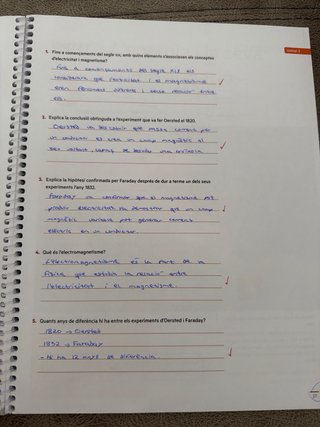 Unitat 3
1. Fins a començaments del segle XIX, amb quins elements s'associaven els conceptes
d'electricitat i magnetisme?
Fins a començaments del segle XIX es
considerava que l'electricitat i el magnetisme
eren fenòmens diferents i sense relació entre
ells.
2. Explica la conclusió obtinguda a l'experiment que va fer Oersted el 1820.
Oersted va descobrir que quan corrent per
un conductor es crea un camp magnètic al
seu voltant, capaç de desviar una brúixola.
3. Explica la hipòtesi confirmada per Faraday després de dur a terme un dels seus
experiments l'any 1832.
Faraday va confirmar que el magnetisme pot
produir electricitat va demostrar que un camp
magnètic variable pot generar corrent
elèctric en un conductor.
4. Què és l'electromagnetisme?
L'electromagnetisme és la part de la
física que estudia la relació entre
l'electricitat i el magnetisme.
5. Quants anys de diferència hi ha entre els experiments d'Oersted i Faraday?
1820 → Oersted
1832 → Faraday
- Hi ha 12 anys de diferència.